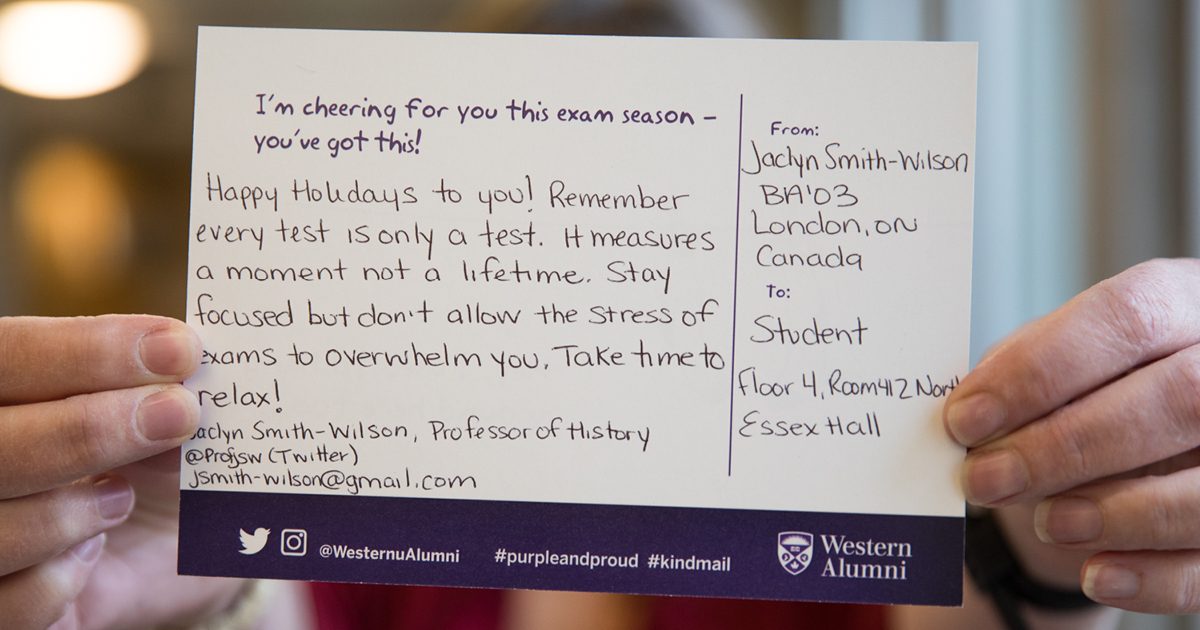 I'm cheering for you this exam season –
you've got this!
Happy Holidays to you! Remember
every test is only a test. It measures
a moment not a lifetime. Stay
focused but don't allow the stress of
exams to overwhelm you. Take time to
relax!
Jaclyn Smith-Wilson, Professor of History
@Profjsw (Twitter)
jsmith-wilson@gmail.com
From:
Jaclyn Smith-Wilson
BA'03
London, ON
Canada
To:
Student
Floor 4, Room 412 North
Essex Hall
@WesternuAlumni #purpleandproud #kindmail
Western
Alumni